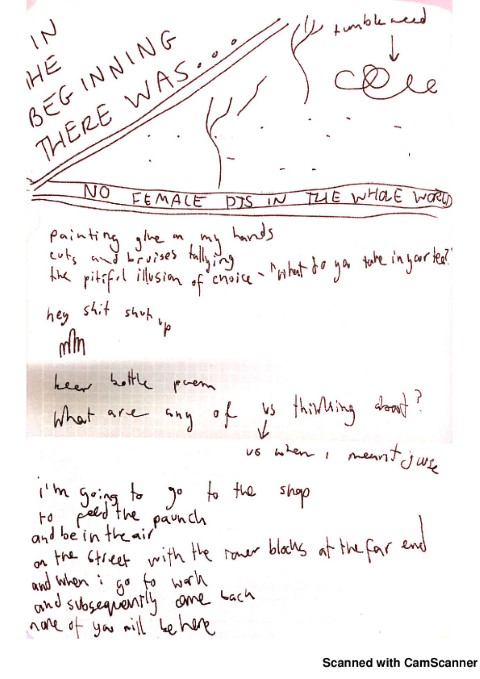 IN
THE
BEGINNING
THERE WAS...
tumbleweed
NO FEMALE DJS IN THE WHOLE WORLD
painting glue on my hands
cuts and bruises tallying
the pitiful illusion of choice - "what do you take in your tea?"
hey shit shut up
beer bottle poem
What are any of us thinking about?
us when i meant just
i'm going to go to the shop
to feed the paunch
and be in the air
on the street with the tower blocks at the far end
and when i go to work
and subsequently come back
none of you will be here
Scanned with CamScanner